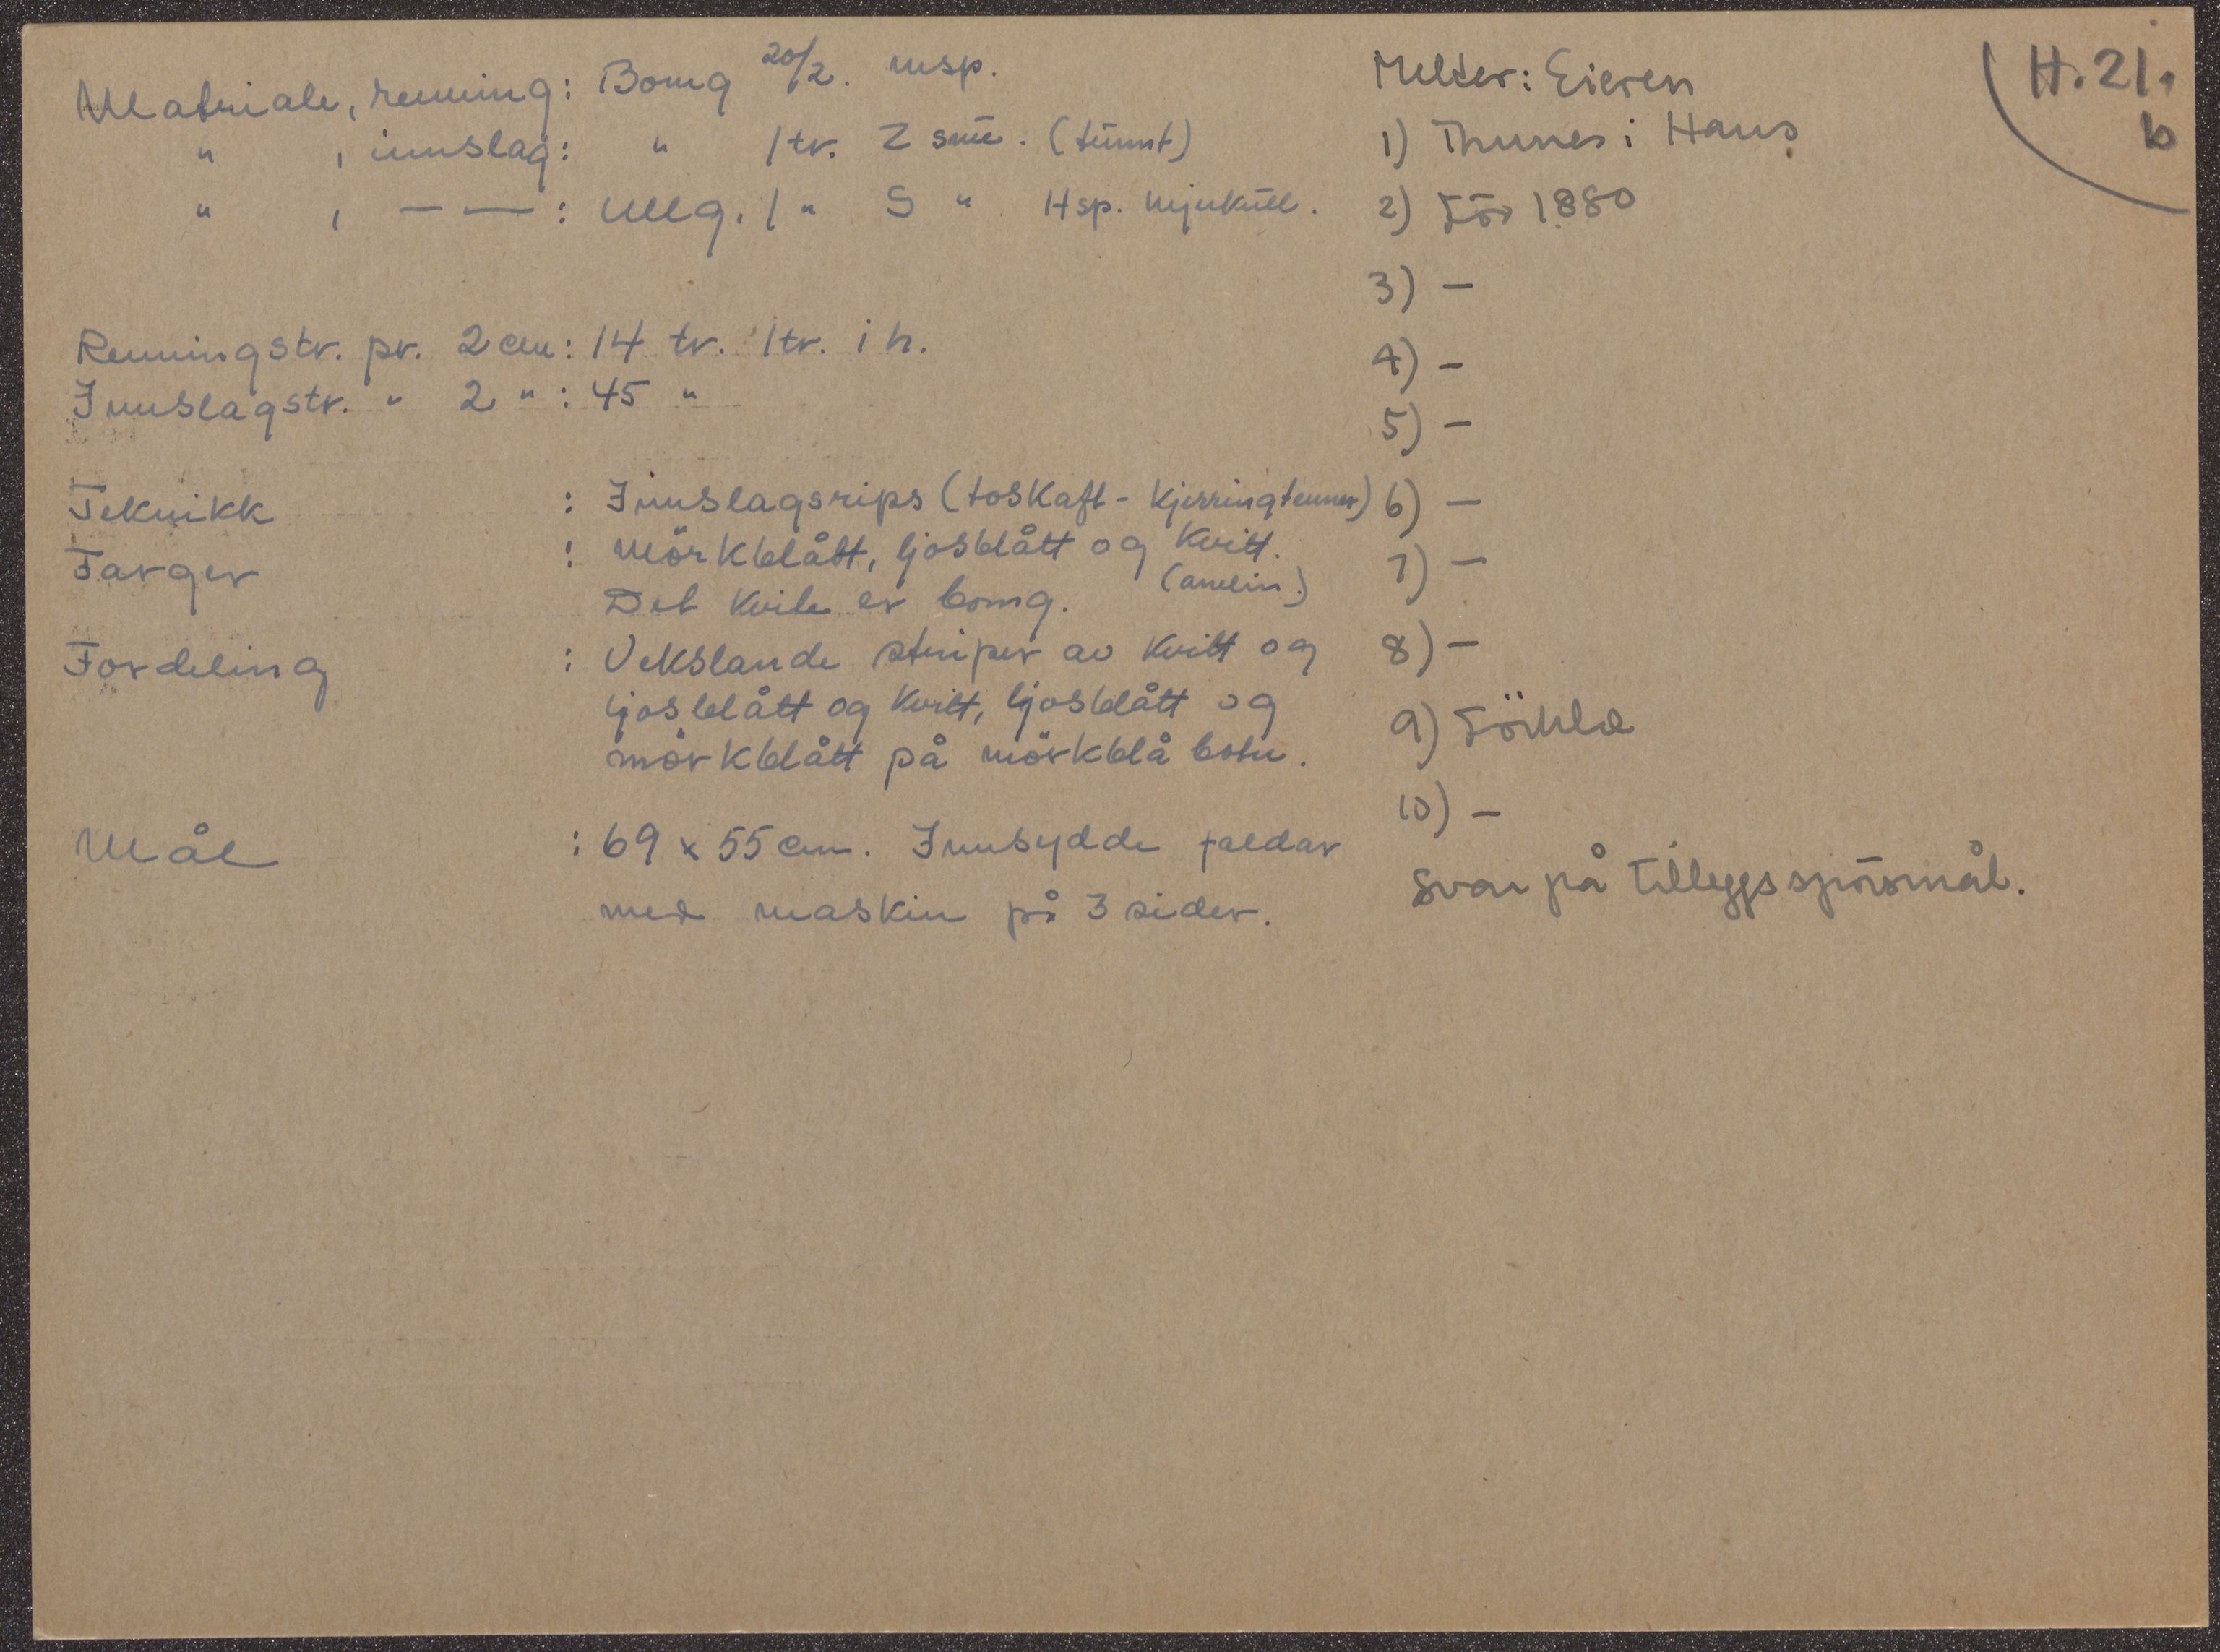 H. 21.
b
Matriale, renning: Bomg 20/2. msp.
" , innslag: " 1 tr. Z snū. (tūnnt)
" , — — : Ullg. 1 " S " Hsp. mjukūll.
Renningstr. pr. 2 cm: 14 tr. 1 tr. i h.
Innslagstr. " 2 " : 45 "
Teknikk : Innslagsrips (toskaft - kjerringtenner)
Farger : Mörkblått, ljosblått og kvitt.
Det kvite er bomg. (anelin.)
Fordeling : Vekslande striper av kvitt og
ljosblått og kvitt, ljosblått og
mörkblått på mörkblå botn.
Mål : 69 x 55 cm. Innsydde faldar
med maskin på 3 sider.
Melder: Eieren
1) Thunes i Haus
2) För 1880
3) –
4) –
5) –
6) –
7) –
8) –
9)
10) –
Svar på tilleggsspörsmål.